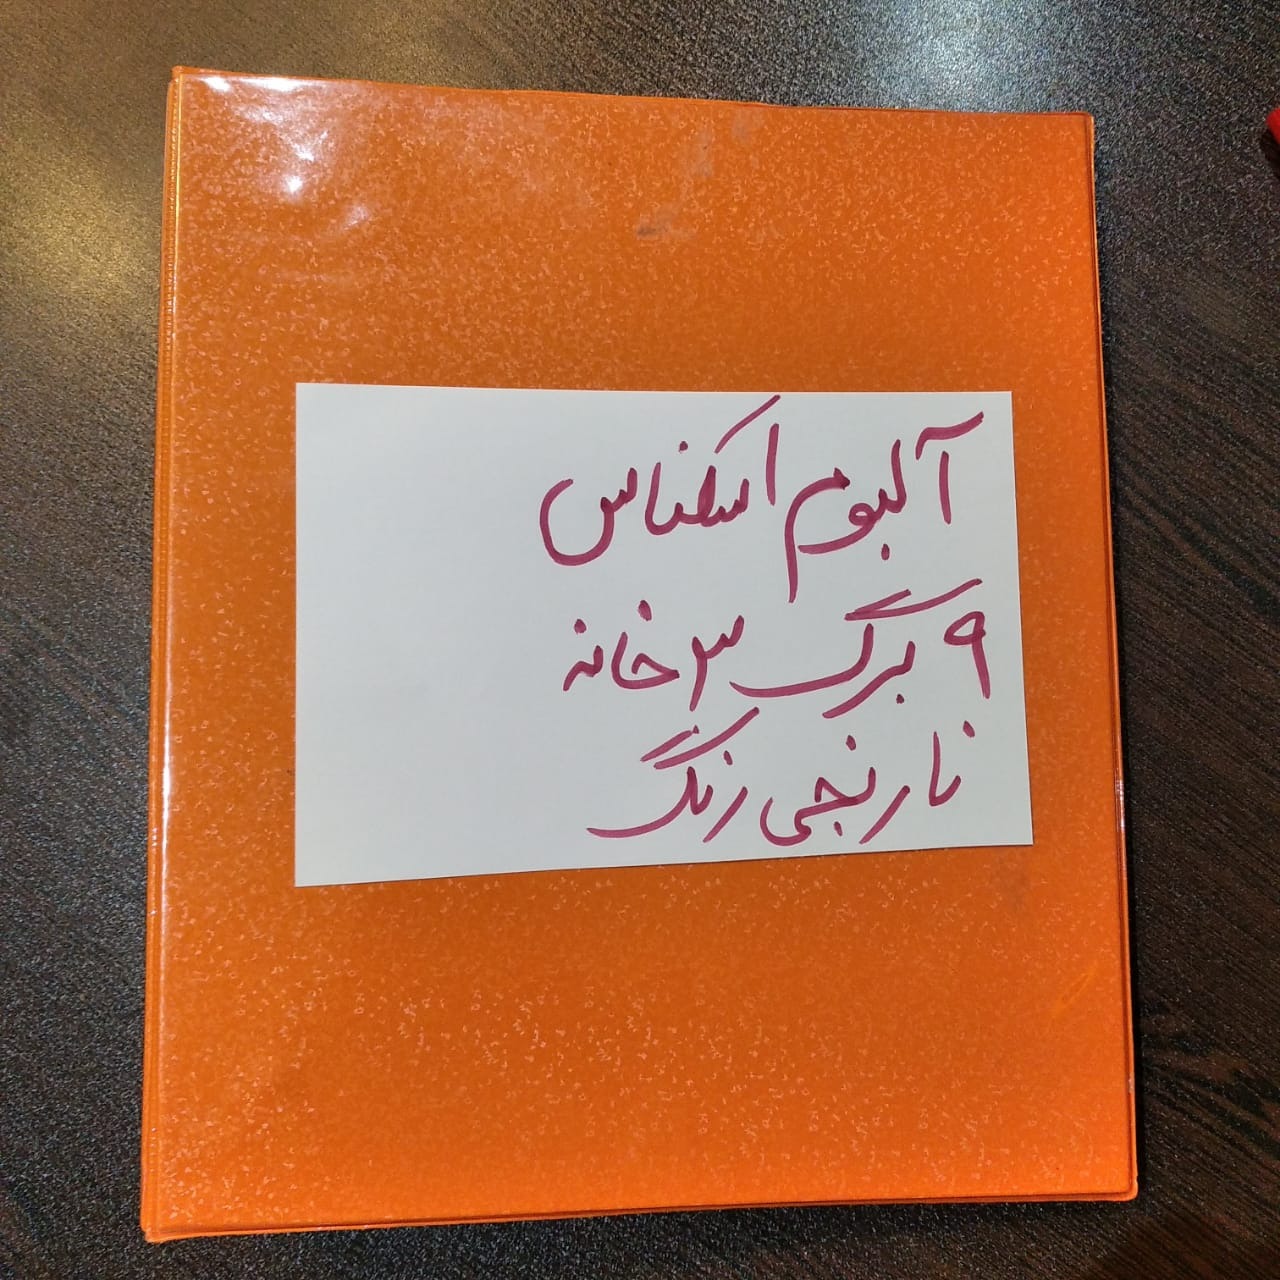 آلبوم اسکناس
۹ برگ ۳ خانه
نارنجی رنگ